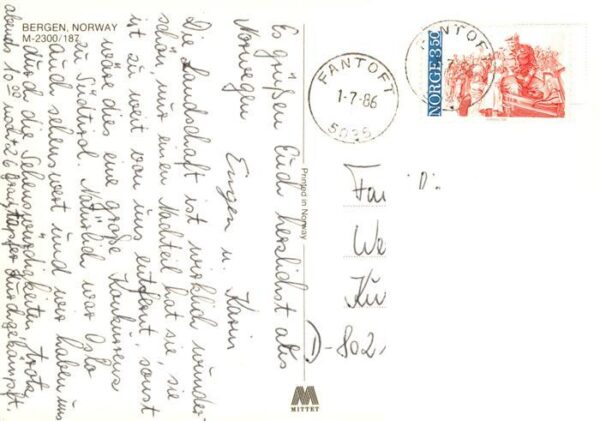 BERGEN, NORWAY
M-2300/187
Es grüßen Euch herzlichst aus
Norwegen Eugen u. Karin
Die Landschaft ist wirklich wunder-
schön, nur einen Nachteil hat sie, sie
ist zu weit von uns entfernt, sonst
wäre dies eine große Konkurrenz
zu Südtirol. Natürlich war Oslo
auch sehenswert und wir haben uns
durch die Sehenswürdigkeiten trotz
abends 10 00 noch + 26 Grad, tapfer durchgekämpft.
Printed in Norway
MITTET
FANTOFT
1-7-86
5036
FANTOFT
NORGE 350
Fa
We
D-802